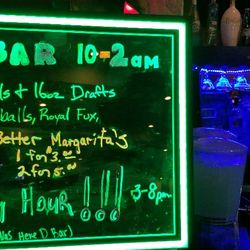 BAR 10-2am
ls & 16oz Drafts
balls, Royal Fux,
Better Margarita's
1 for $3.00
2 for 5.00
y Hour!!! 3-8pm
Was Here D Bar)